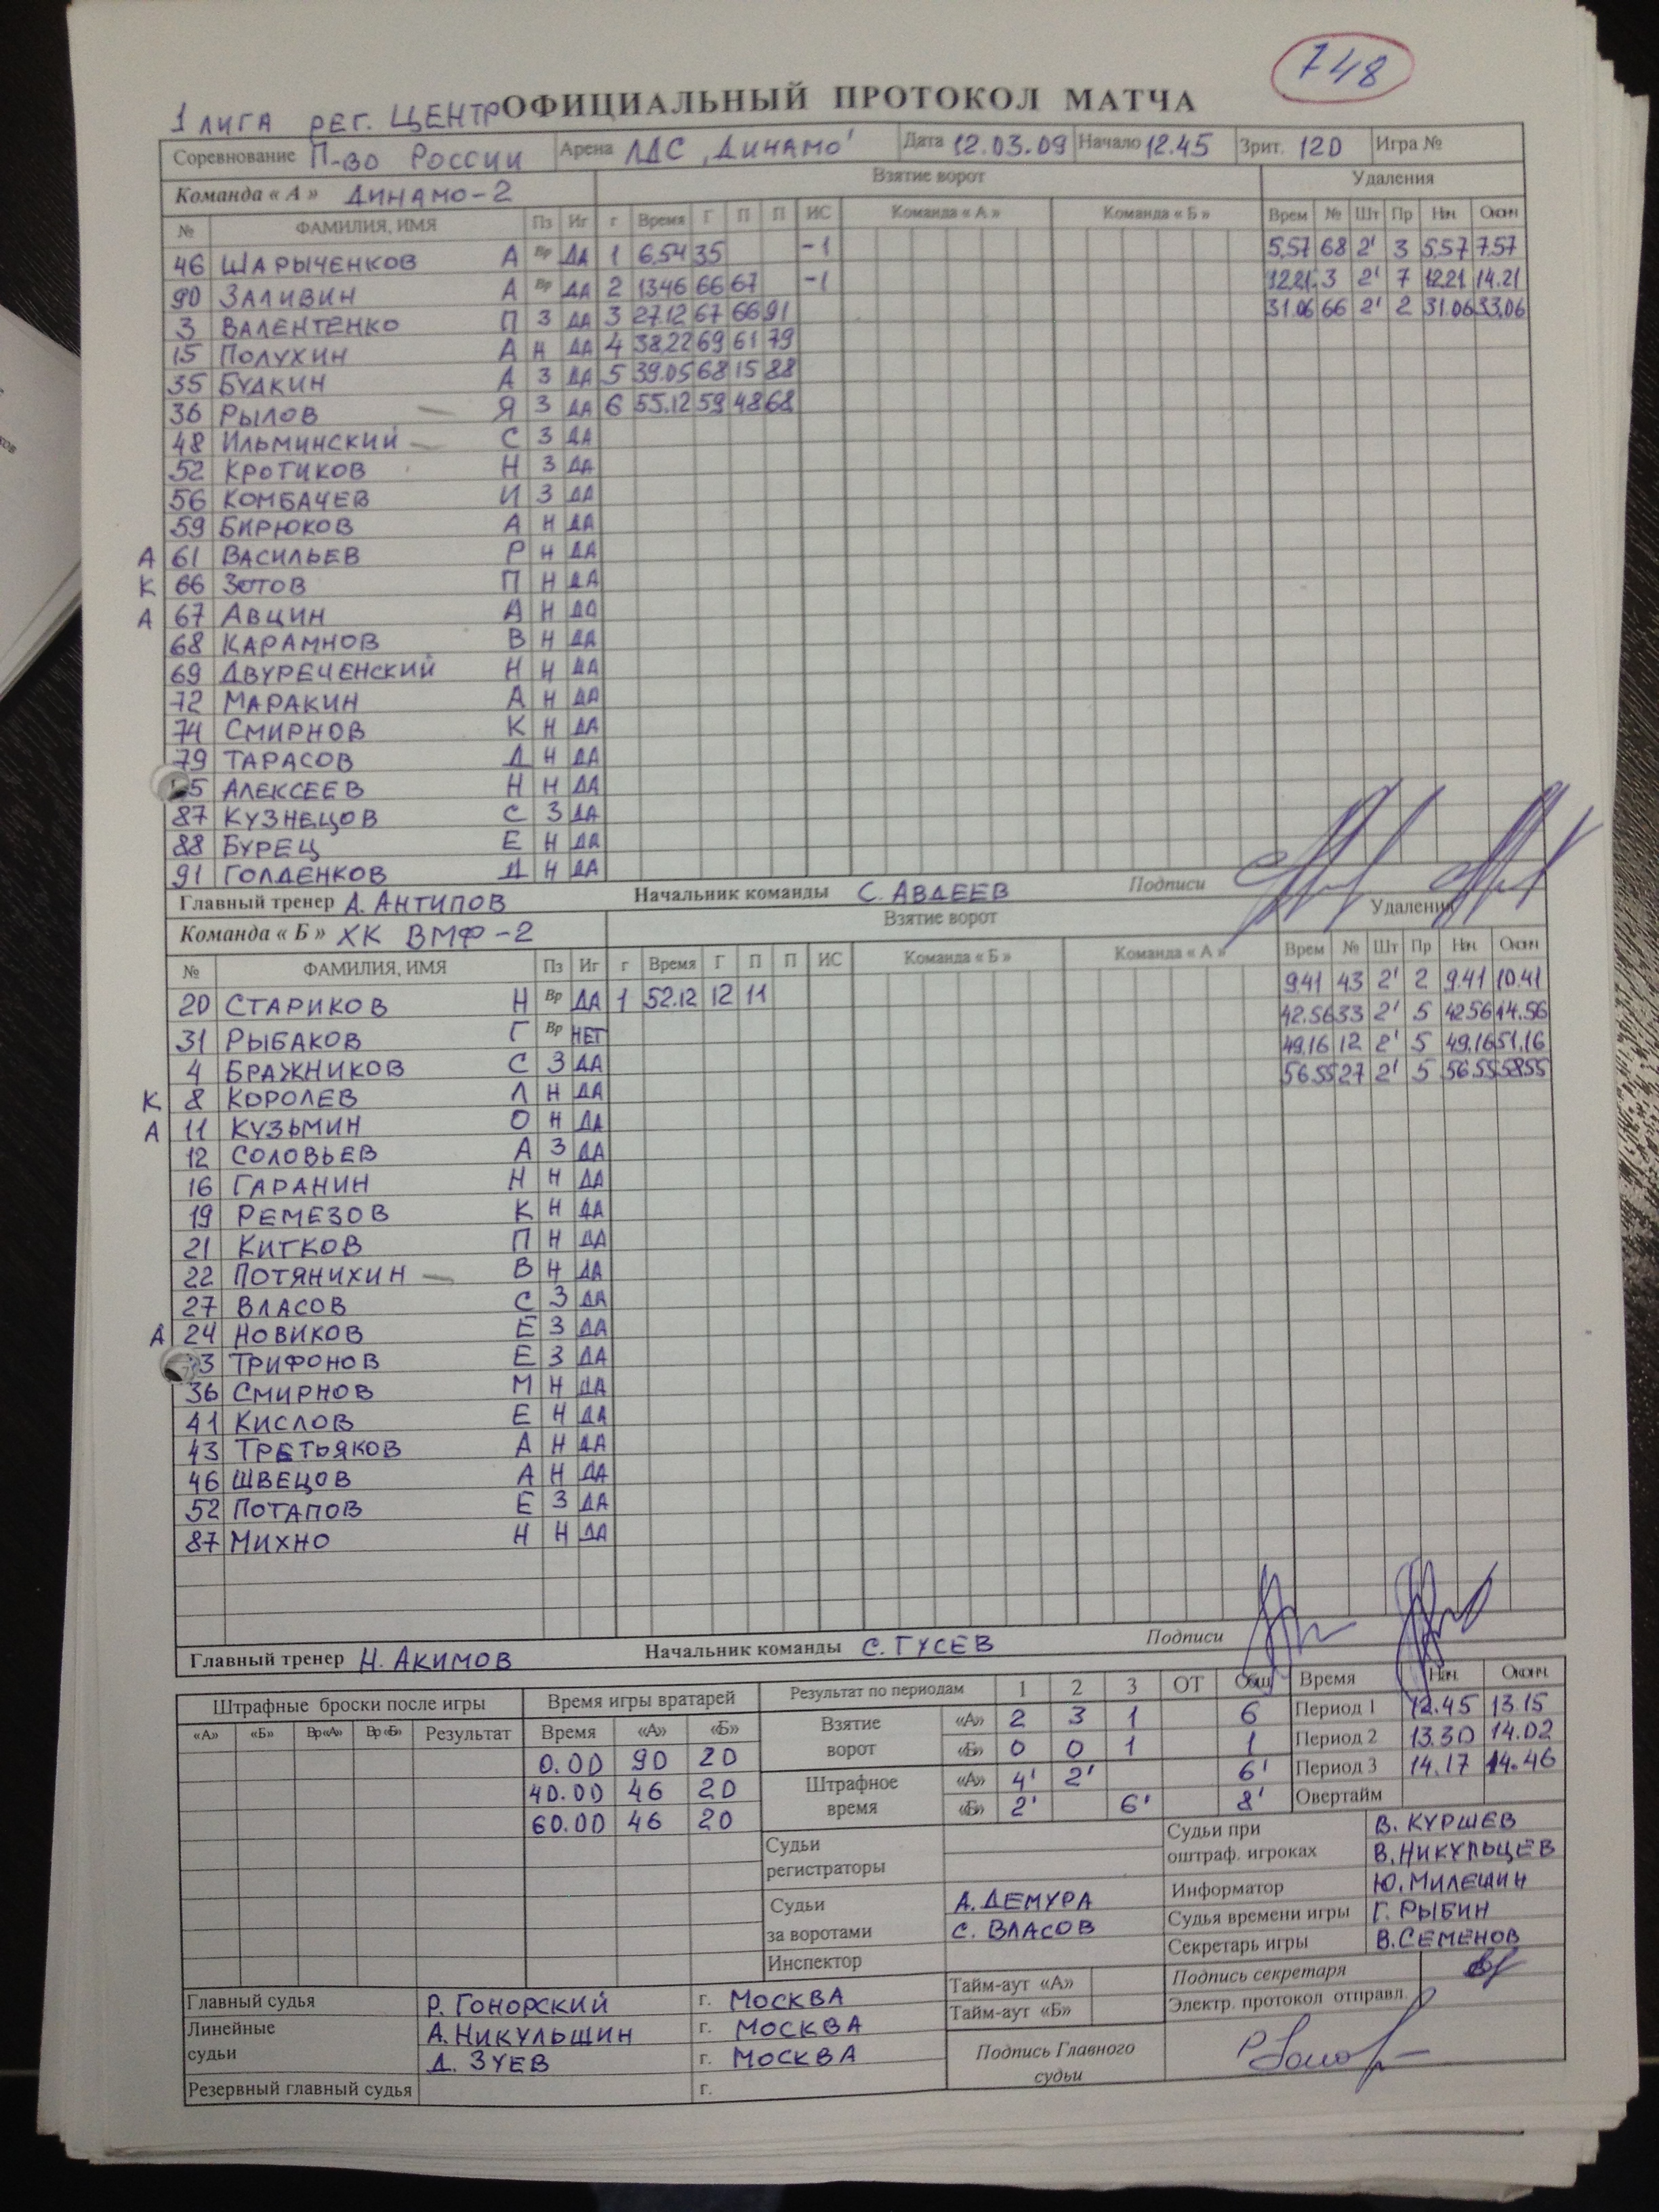 748
1 ЛИГА РЕГ. ЦЕНТР ОФИЦИАЛЬНЫЙ ПРОТОКОЛ МАТЧА
Соревнование П-ВО РОССИИ Арена ЛДС "ДИНАМО" Дата 12.03.09 Начало 12.45 Зрит. 120 Игра №
Команда « А » ДИНАМО-2 Взятие ворот Удаления
№ ФАМИЛИЯ, ИМЯ Пз Иг г Время Г П П ИС Команда « А » Команда « Б » Врем № Шт Пр Нач Оконч
46 ШАРЫЧЕНКОВ А Вр ДА 1 6.54 35 -1 5.57 68 2' 3 5.57 7.57
90 ЗАЛИВИН А Вр ДА 2 13.46 66 67 -1 12.21 3 2' 7 12.21 14.21
3 ВАЛЕНТЕНКО П З ДА 3 27.12 67 66 91 31.06 66 2' 2 31.06 33.06
15 ПОЛУХИН А Н ДА 4 38.22 69 61 79
35 БУДКИН А З ДА 5 39.05 68 15 88
36 РЫЛОВ Я З ДА 6 55.12 59 48 68
48 ИЛЬМИНСКИЙ С З ДА
52 КРОТИКОВ Н З ДА
56 КОМБАЧЕВ И З ДА
59 БИРЮКОВ А Н ДА
А 61 ВАСИЛЬЕВ Р Н ДА
К 66 ЗОТОВ П Н ДА
А 67 АВЦИН А Н ДА
68 КАРАМНОВ В Н ДА
69 ДВУРЕЧЕНСКИЙ Н Н ДА
72 МАРАКИН А Н ДА
74 СМИРНОВ К Н ДА
79 ТАРАСОВ Д Н ДА
5 АЛЕКСЕЕВ Н Н ДА
87 КУЗНЕЦОВ С З ДА
88 БУРЕЦ Е Н ДА
91 ГОЛДЕНКОВ Д Н ДА
Главный тренер А. АНТИПОВ Начальник команды С. АВДЕЕВ Подписи
Команда « Б » ХК ВМФ-2 Взятие ворот Удаления
№ ФАМИЛИЯ, ИМЯ Пз Иг г Время Г П П ИС Команда « Б » Команда « А » Врем № Шт Пр Нач Оконч
20 СТАРИКОВ Н Вр ДА 1 52.12 12 11 9.41 43 2' 2 9.41 10.41
31 РЫБАКОВ Г Вр НЕТ 42.56 33 2' 5 42.56 44.56
4 БРАЖНИКОВ С З ДА 49.16 12 2' 5 49.16 51.16
К 8 КОРОЛЕВ Л Н ДА 56.55 27 2' 5 56.55 58.55
А 11 КУЗЬМИН О Н ДА
12 СОЛОВЬЕВ А З ДА
16 ГАРАНИН Н Н ДА
19 РЕМЕЗОВ К Н ДА
21 КИТКОВ П Н ДА
22 ПОТЯНИХИН В Н ДА
27 ВЛАСОВ С З ДА
А 24 НОВИКОВ Е З ДА
33 ТРИФОНОВ Е З ДА
36 СМИРНОВ М Н ДА
41 КИСЛОВ Е Н ДА
43 ТРЕТЬЯКОВ А Н ДА
46 ШВЕЦОВ А Н ДА
52 ПОТАПОВ Е З ДА
87 МИХНО Н Н ДА
Главный тренер Н. АКИМОВ Начальник команды С. ГУСЕВ Подписи
Штрафные броски после игры Время игры вратарей Результат по периодам 1 2 3 ОТ Общ Время Нач. Оконч.
«А» «Б» Вр«А» Вр«Б» Результат Время «А» «Б» Взятие ворот «А» 2 3 1 6 Период 1 12.45 13.15
0.00 90 20 «Б» 0 0 1 1 Период 2 13.30 14.02
40.00 46 20 Штрафное время «А» 4' 2' 6' Период 3 14.17 14.46
60.00 46 20 «Б» 2' 6' 8' Овертайм
Судьи регистраторы Судьи при оштраф. игроках В. КУРШЕВ
В. НИКУЛЬЦЕВ
Судьи за воротами А. ДЕМУРА Информатор Ю. МИЛЕШИН
С. ВЛАСОВ Судья времени игры Г. РЫБИН
Инспектор Секретарь игры В. СЕМЕНОВ
Тайм-аут «А» Подпись секретаря
Главный судья Р. ГОНОРСКИЙ г. МОСКВА Тайм-аут «Б» Электр. протокол отправл.
Линейные судьи А. НИКУЛЬШИН г. МОСКВА
Д. ЗУЕВ г. МОСКВА Подпись Главного судьи
Резервный главный судья г.